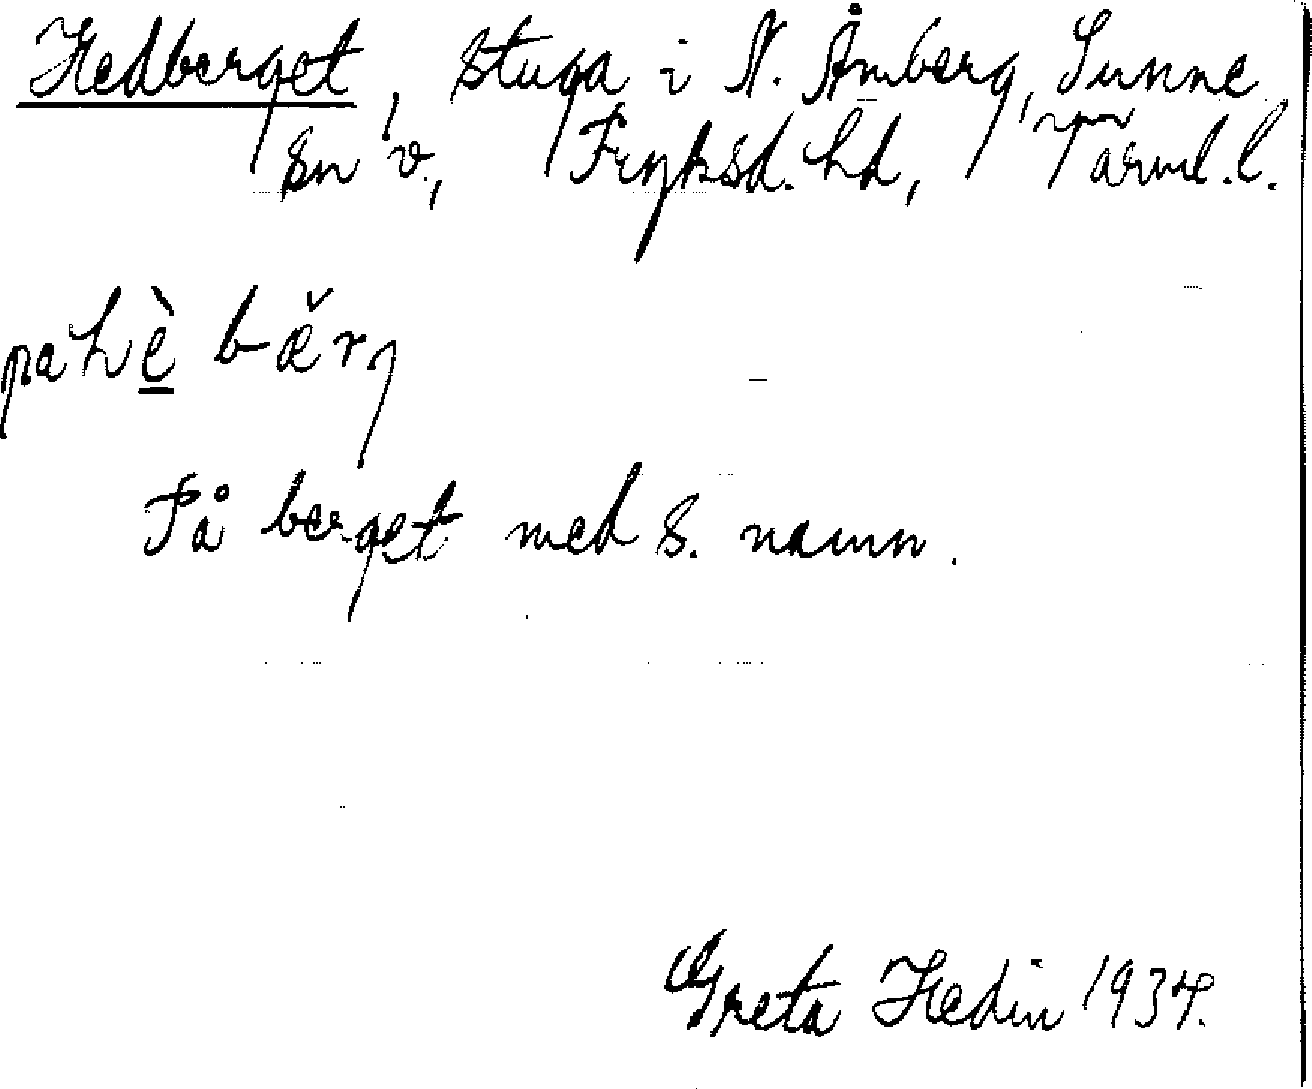 Hedberget, stuga i N. Åmberg, Sunne
sn v., Fryksd. hd, Värml. l.
pa hè bæ̌rj
På berget med s. namn.
Greta Hedin 1934.